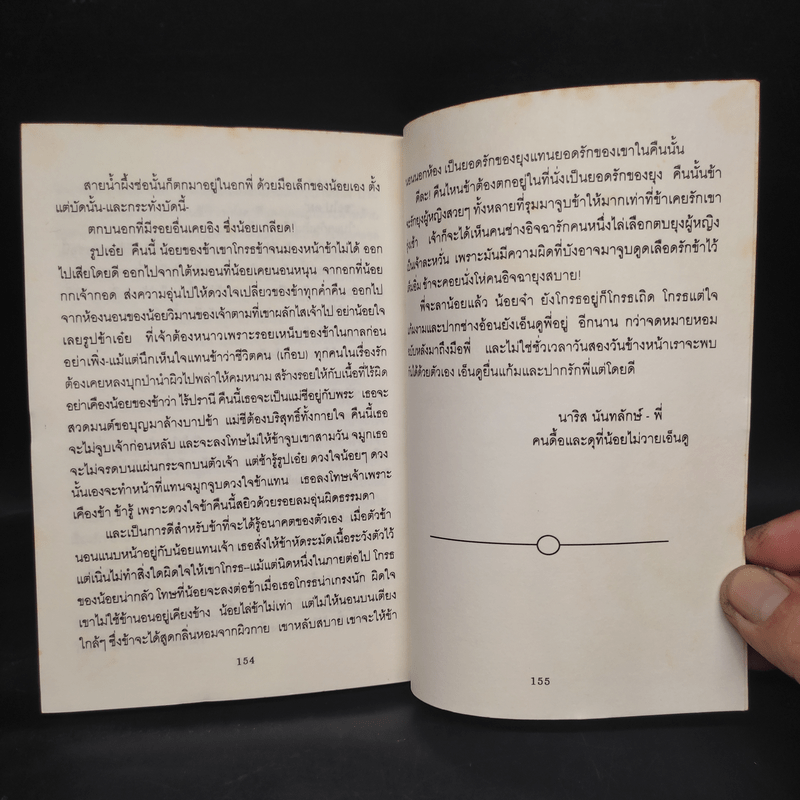 สายน้ำผึ้งช่อนั้นก็ตกมาอยู่ในอกพี่ ด้วยมือเล็กของน้อยเอง ตั้ง
แต่บัดนั้น-และกระทั่งบัดนี้-
ตกบนอกที่มีรอยอื่นเคยอิง ซึ่งน้อยเกลียด!
รูปเอ๋ย คืนนี้ น้อยของข้าเขาโกรธข้าจนมองหน้าข้าไม่ได้ ออก
ไปเสียโดยดี ออกไปจากใต้หมอนที่น้อยเคยนอนหนุน จากอกที่น้อย
กกเจ้ากอด ส่งความอุ่นไปให้ดวงใจเปลี่ยวของข้าทุกค่ำคืน ออกไป
จากห้องนอนของน้อยวิมานของเจ้าตามที่เขาผลักไสเจ้าไป อย่าน้อยใจ
เลยรูปข้าเอ๋ย ที่เจ้าต้องหนาวเพราะรอยเหน็บของข้าในกาลก่อน
อย่าเพิ่ง-แม้แต่นึกเห็นใจแทนข้าว่าชีวิตคน (เกือบ) ทุกคนในเรื่องรัก
ต้องเคยหลงบุกป่าฝ่าผิวไปพล่าให้คมหนาม สร้างรอยให้กับเนื้อที่ไร้ผิด
อย่าเคืองน้อยของข้าว่า ไร้ปรานี คืนนี้เธอจะเป็นแม่ชีอยู่กับพระ เธอจะ
สวดมนต์ขอบุญมาล้างบาปข้า แม่ชีต้องบริสุทธิ์ทั้งกายใจ คืนนี้เธอ
จะไม่จูบเจ้าก่อนหลับ และจะลงโทษไม่ให้ข้าจูบเขาสามวัน จมูกเธอ
จะไม่จรดบนแผ่นกระจกบนตัวเจ้า แต่ข้ารู้รูปเอ๋ย ดวงใจน้อยๆ ดวง
นั้นเองจะทำหน้าที่แทนจมูกจูบดวงใจข้าแทน เธอลงโทษเจ้าเพราะ
เคืองข้า ข้ารู้ เพราะดวงใจข้าคืนนี้สยิวด้วยรอยลมอุ่นผิดธรรมดา
และเป็นการดีสำหรับข้าที่จะได้รู้อนาคตของตัวเอง เมื่อตัวข้า
นอนแนบหน้าอยู่กับน้อยแทนเจ้า เธอสั่งให้ข้าหัดระมัดเนื้อระวังตัวไว้
แต่เนิ่นไม่ทำสิ่งใดผิดใจให้เขาโกรธ-แม้แต่นิดหนึ่งในภายต่อไป โกรธ
ของน้อยน่ากลัว โทษที่น้อยจะลงต่อข้าเมื่อเธอโกรธน่าเกรงนัก ผิดใจ
เขาไม่ใช้ข้านอนอยู่เคียงข้าง น้อยไล่ข้าไม่เท่า แต่ไม่ให้นอนบนเตียง
ใกล้ๆ ซึ่งข้าจะได้สูดกลิ่นหอมจากผิวกาย เขาหลับสบาย เขาจะให้ข้า
154
นอนนอกห้อง เป็นยอดรักของยุงแทนยอดรักของเขาในคืนนั้น
ดีละ! คืนไหนข้าต้องตกอยู่ในที่นั่งเป็นยอดรักของยุง คืนนั้นข้า
จะรักยุงผู้หญิงสวยๆ ทั้งหลายที่รุมมาจูบข้าให้มากเท่าที่ข้าเคยรักเขา
เจ้าก็จะได้เห็นคนช่างอิจฉารักคนหนึ่งไล่เลือกตบยุงผู้หญิง
เป็นเจ้าละหวั่น เพราะมันมีความผิดที่บังอาจมาจูบดูดเลือดรักข้าไว้
ข้าจะคอยนั่งโห่คนอิจฉายุงสบาย!
พี่จะลาน้อยแล้ว น้อยจ๋า ยังโกรธอยู่ก็โกรธเถิด โกรธแต่ใจ
แก้มงามและปากช่างอ้อนยังเอ็นดูพี่อยู่ อีกนาน กว่าจดหมายหอม
ฉบับหลังมาถึงมือพี่ และไม่ใช่ชั่วเวลาวันสองวันข้างหน้าเราจะพบ
กันได้ด้วยตัวเอง เอ็นดูยื่นแก้มและปากรักพี่แต่โดยดี
นาริส นันทลักษ์ - พี่
คนดื้อและดุที่น้อยไม่วายเอ็นดู
155